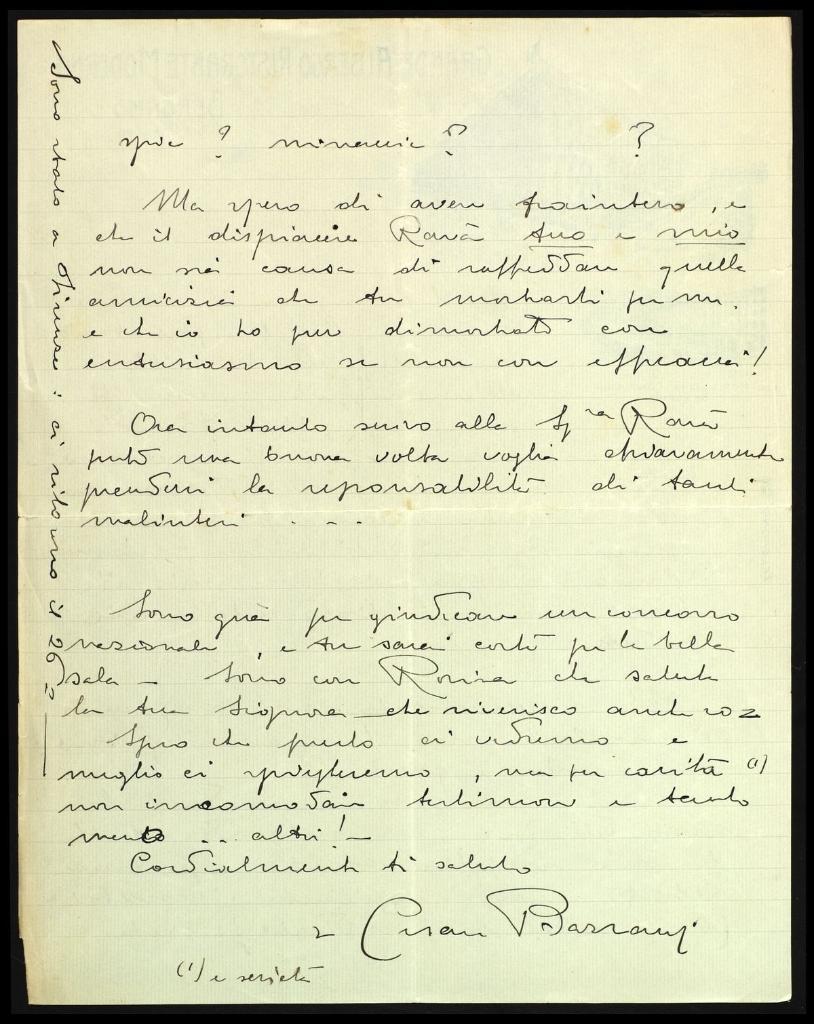 spie ? minaccie ? ?
Ma spero di avere frainteso, e
che il dispiacere Ravà tuo e mio
non sia causa di raffreddare quella
amicizia che tu mostrasti per me.
e che io ho pur dimostrato con
entusiasmo se non con efficacia!
Ora intanto scrivo alla Sg.ra Ravà
perché una buona volta voglia chiaramente
prendersi la responsabilità di tanti
malintesi . . .
Sono quà per giudicare un concorso
nazionale, e tu sarai certo per le belle
sala – Sono con Rosina che saluta
la tua Signora – che riverisco anch'io
Spero che presto ci vedremo e
meglio ci spiegheremo, ma per carità (1)
non incomodare testimoni e tanto
meno .. altri! –
Cordialmente ti saluto
Cesare Barzaghi
(1) e serietà
Sono stato a Firenze: ci ritorno il 26
GRANDE ALBERGO RISTORANTE MODERNO
BERGAMO